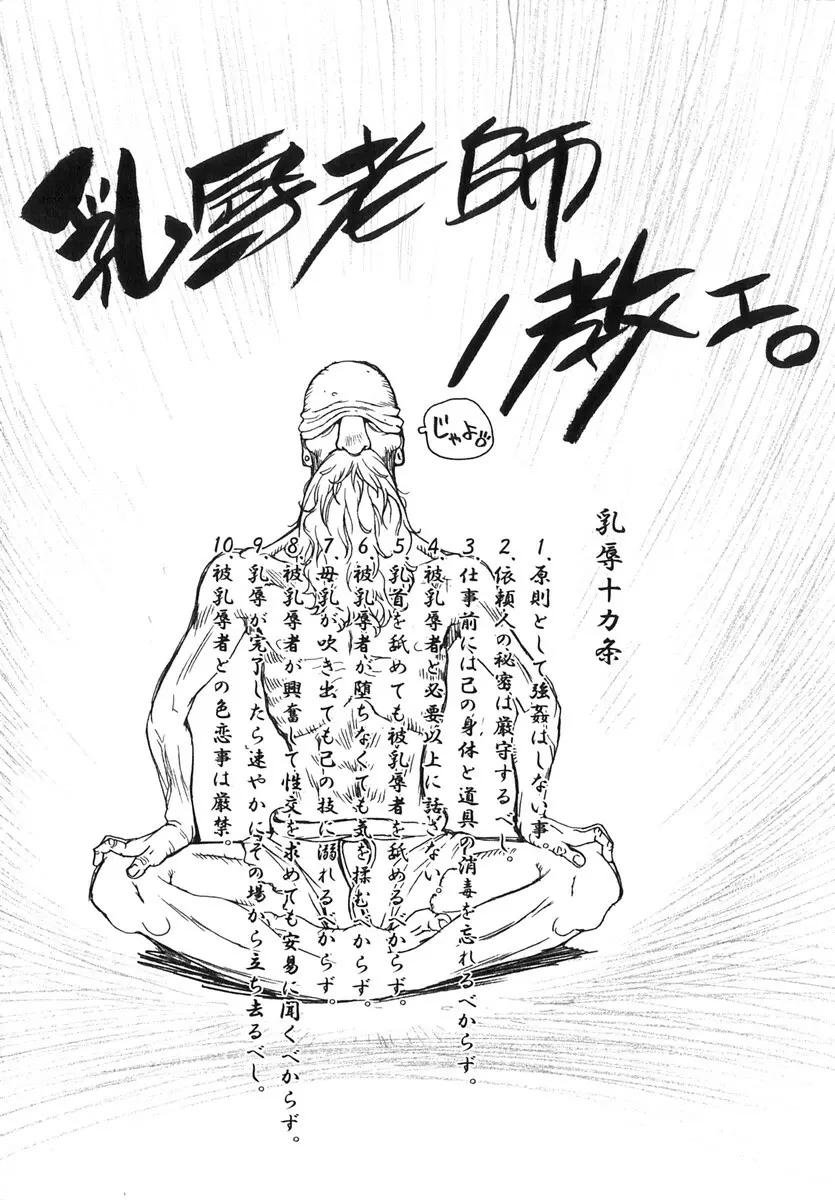 乳辱老師
ノ教エ。
じゃよ。
乳辱十カ条
1.原則として強姦はしない事。
2.依頼人の秘密は厳守するべし。
3.仕事前には己の身体と道具の消毒を忘れるべからず。
4.被乳辱者と必要以上に話さない。
5.乳首を舐めても被乳辱者を舐めるべからず。
6.被乳辱者が堕ちなくても気を揉むべからず。
7.母乳が吹き出ても己の技に溺れるべからず。
8.被乳辱者が興奮して性交を求めても安易に聞くべからず。
9.乳辱が完了したら速やかにその場から立ち去るべし。
10.被乳辱者との色恋事は厳禁。